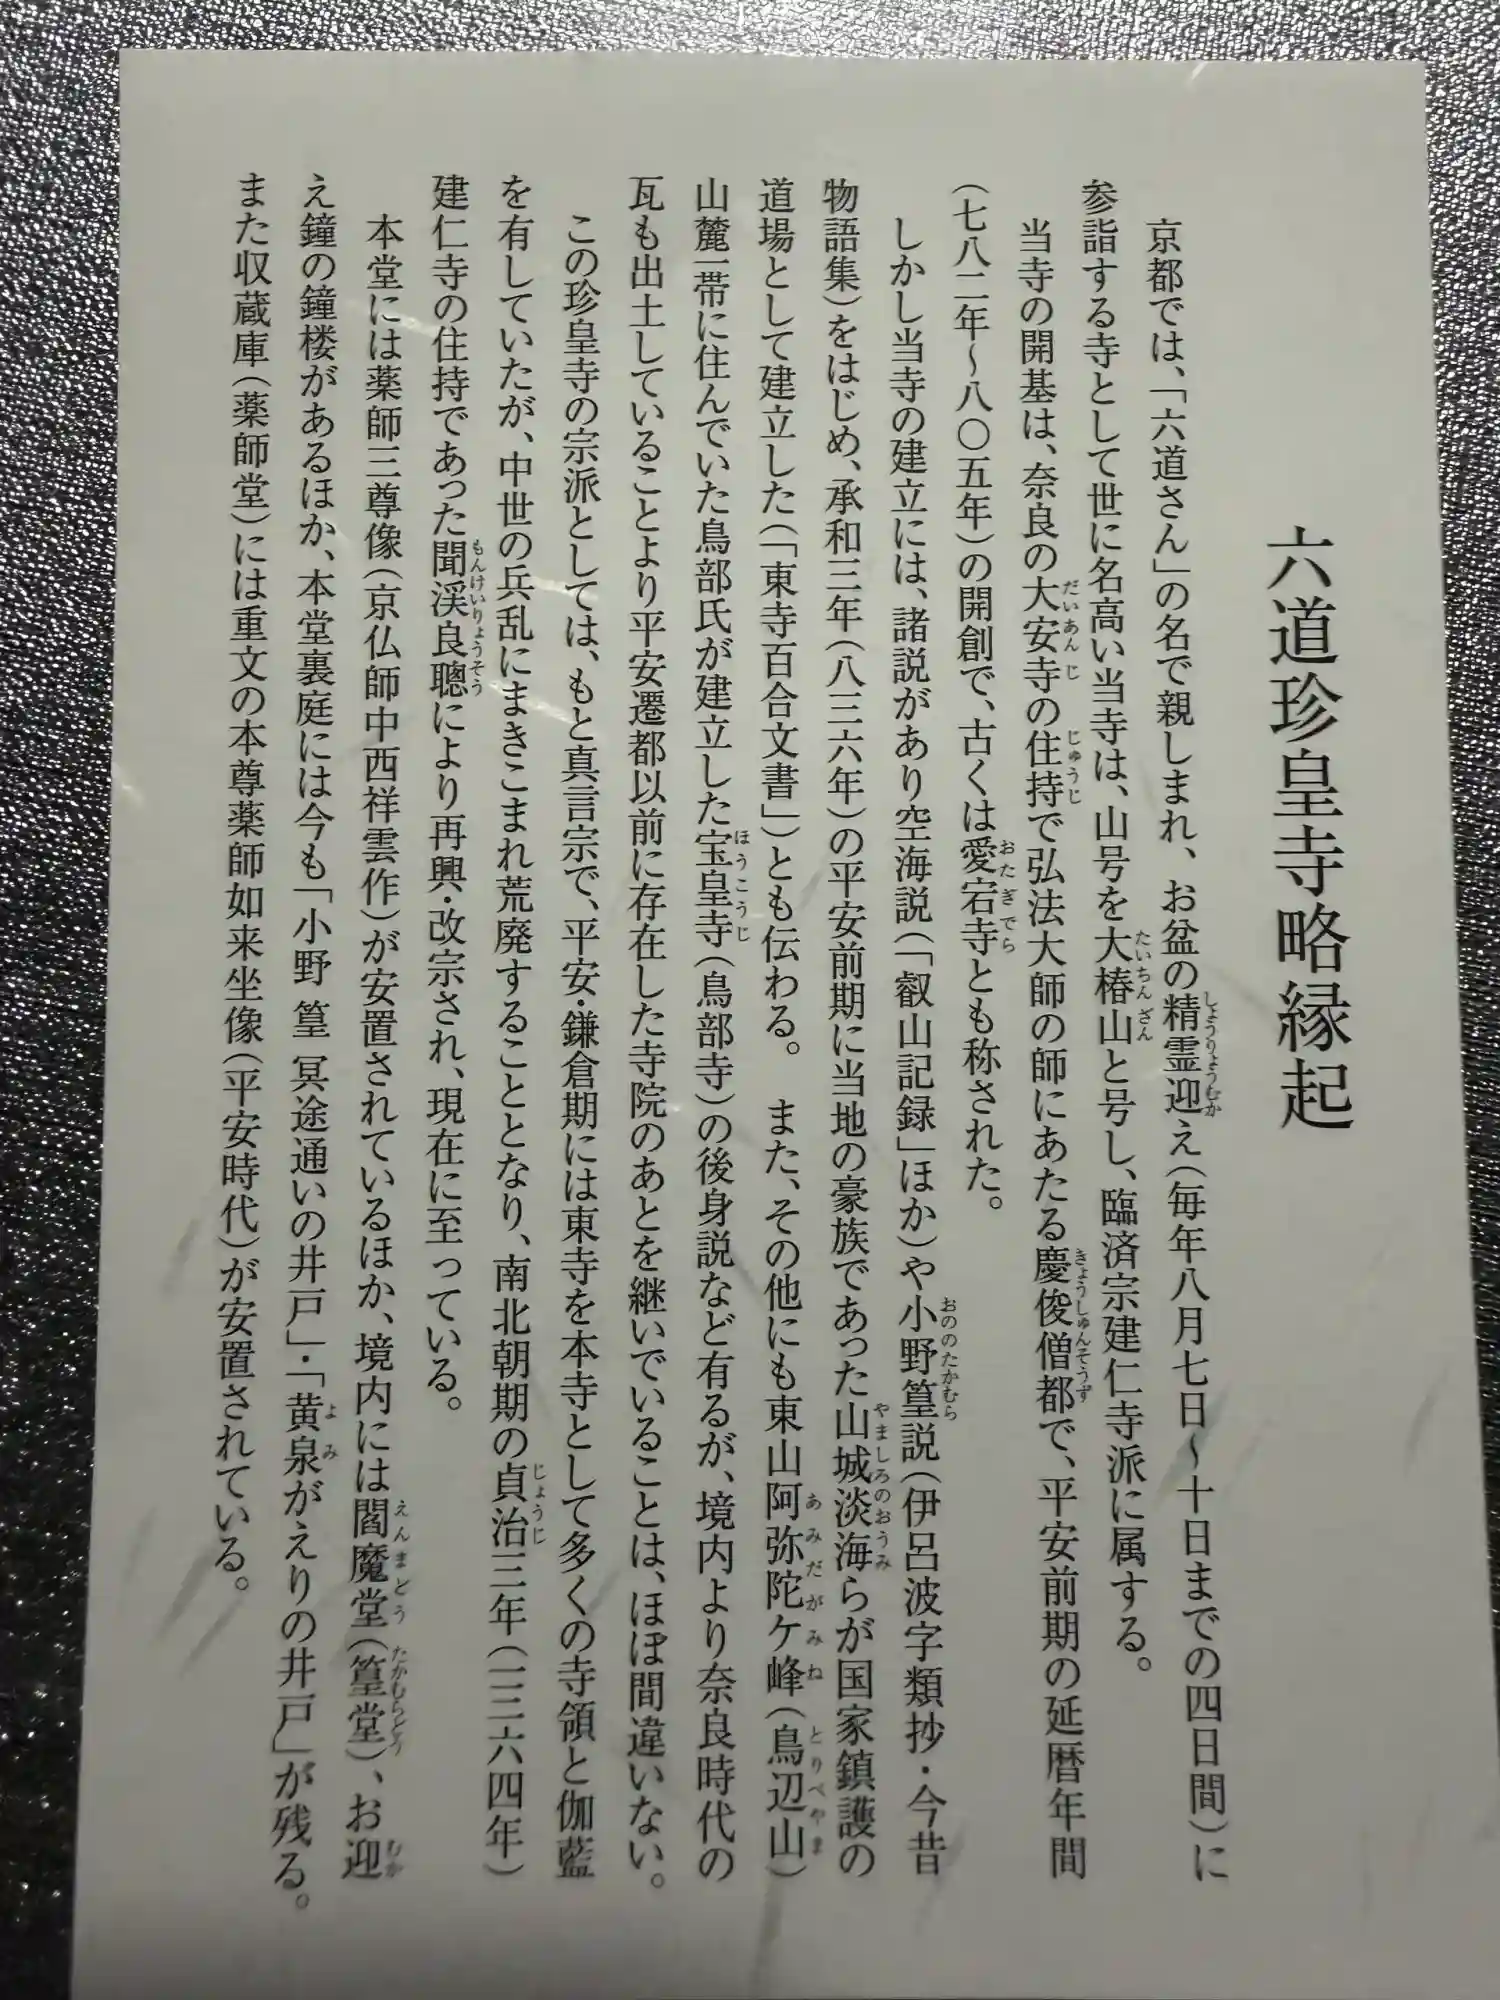 六道珍皇寺略縁起
京都では、「六道さん」の名で親しまれ、お盆の精霊迎え（毎年八月七日～十日までの四日間）に
参詣する寺として世に名高い当寺は、山号を大椿山と号し、臨済宗建仁寺派に属する。
当寺の開基は、奈良の大安寺の住持で弘法大師の師にあたる慶俊僧都で、平安前期の延暦年間
（七八二年～八〇五年）の開創で、古くは愛宕寺とも称された。
しかし当寺の建立には、諸説があり空海説（「叡山記録」ほか）や小野篁説（伊呂波字類抄・今昔
物語集）をはじめ、承和三年（八三六年）の平安前期に当地の豪族であった山城淡海らが国家鎮護の
道場として建立した（「東寺百合文書」）とも伝わる。　また、その他にも東山阿弥陀ケ峰（鳥辺山）
山麓一帯に住んでいた鳥部氏が建立した宝皇寺（鳥部寺）の後身説など有るが、境内より奈良時代の
瓦も出土していることより平安遷都以前に存在した寺院のあとを継いでいることは、ほぼ間違いない。
この珍皇寺の宗派としては、もと真言宗で、平安・鎌倉期には東寺を本寺として多くの寺領と伽藍
を有していたが、中世の兵乱にまきこまれ荒廃することとなり、南北朝期の貞治三年（一三六四年）
建仁寺の住持であった聞渓良聰により再興・改宗され、現在に至っている。
本堂には薬師三尊像（京仏師中西祥雲作）が安置されているほか、境内には閻魔堂（篁堂）、お迎
え鐘の鐘楼があるほか、本堂裏庭には今も「小野 篁 冥途通いの井戸」・「黄泉がえりの井戸」が残る。
また収蔵庫（薬師堂）には重文の本尊薬師如来坐像（平安時代）が安置されている。